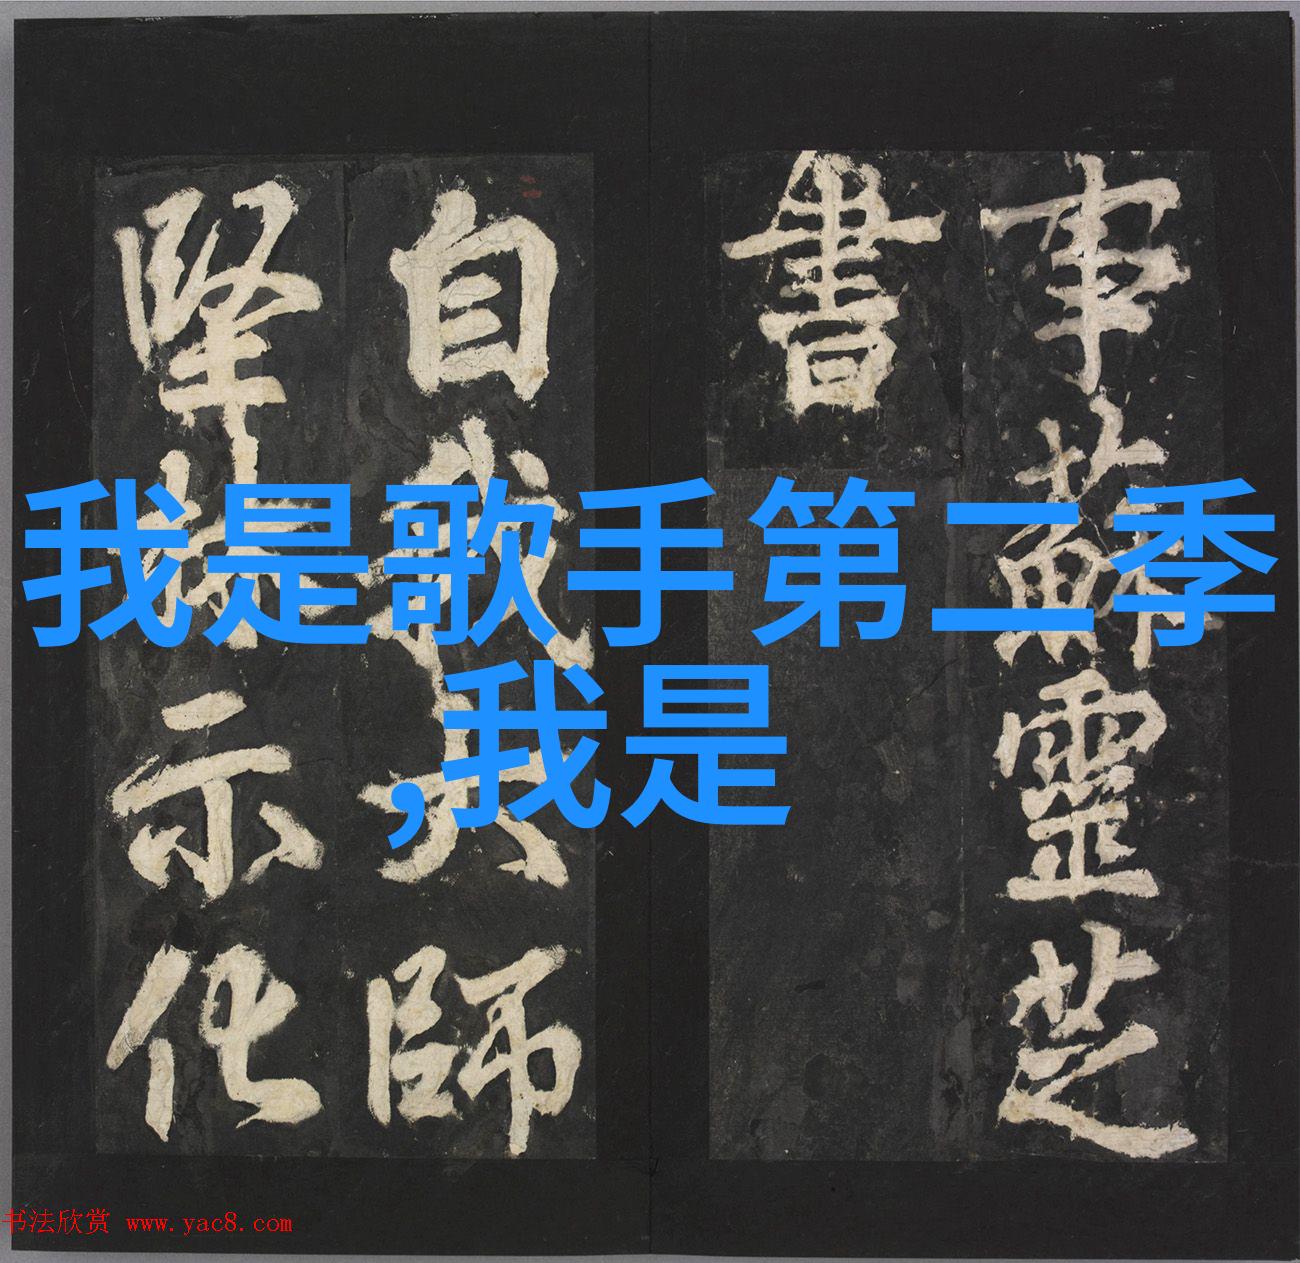 事蘇靈芝
書
自我大師
堅林示化
我是歌手第二季
,我是
书法欣赏 www.yac8.com